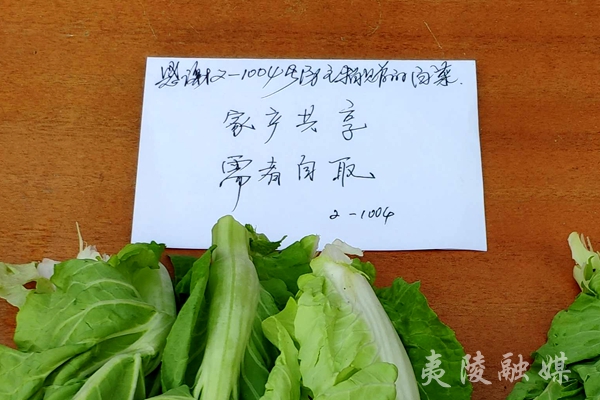 感谢2-1004号房主捐赠的白菜.
家产共享
需者自取
2-1004
夷陵融媒